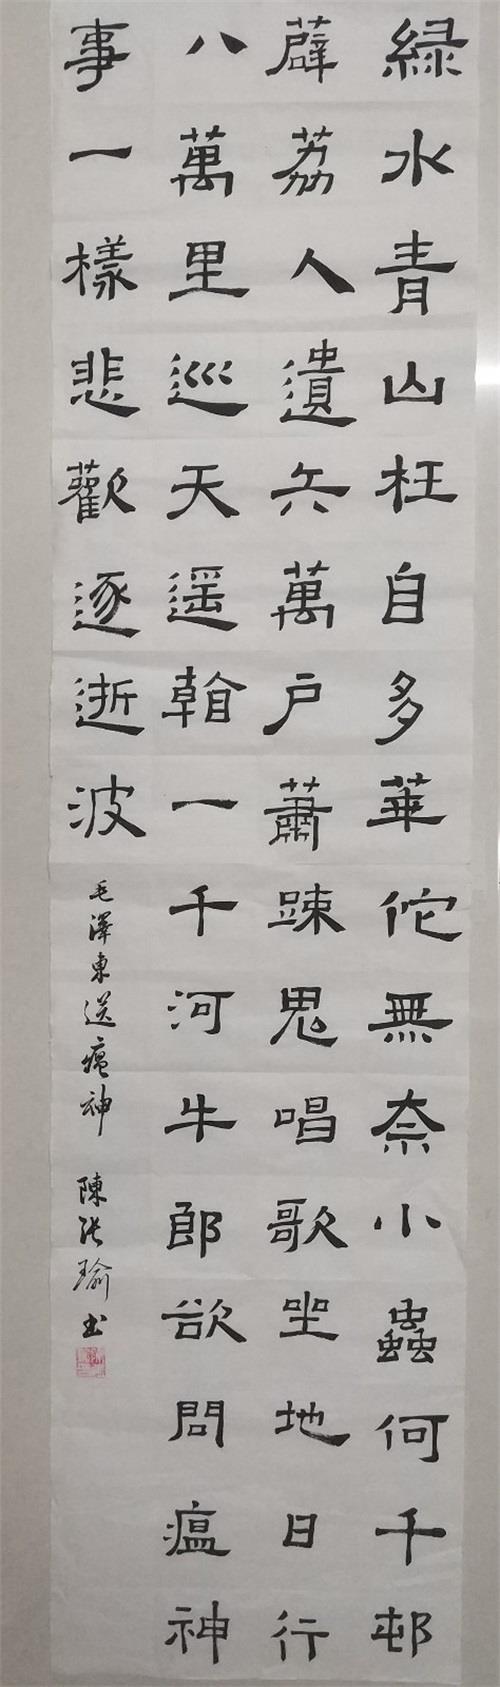 緑水青山枉自多華佗無奈小蟲何千邨
薜荔人遺矢萬戶蕭踈鬼唱歌坐地日行
八萬里巡天遥看一千河牛郎欲問瘟神
事一樣悲歡逐逝波
毛澤東送瘟神 陳張瑜书